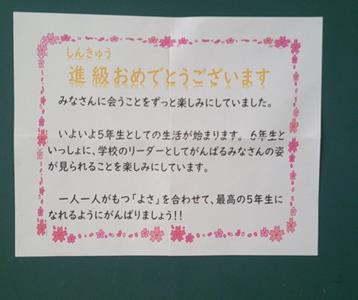 しんきゅう
進級おめでとうございます
みなさんに会うことをずっと楽しみにしていました。
いよいよ5年生としての生活が始まります。6年生と
いっしょに、学校のリーダーとしてがんばるみなさんの
姿が見られることを楽しみにしています。
一人一人がもつ「よさ」を合わせて、最高の5年生に
なれるようにがんばりましょう!!